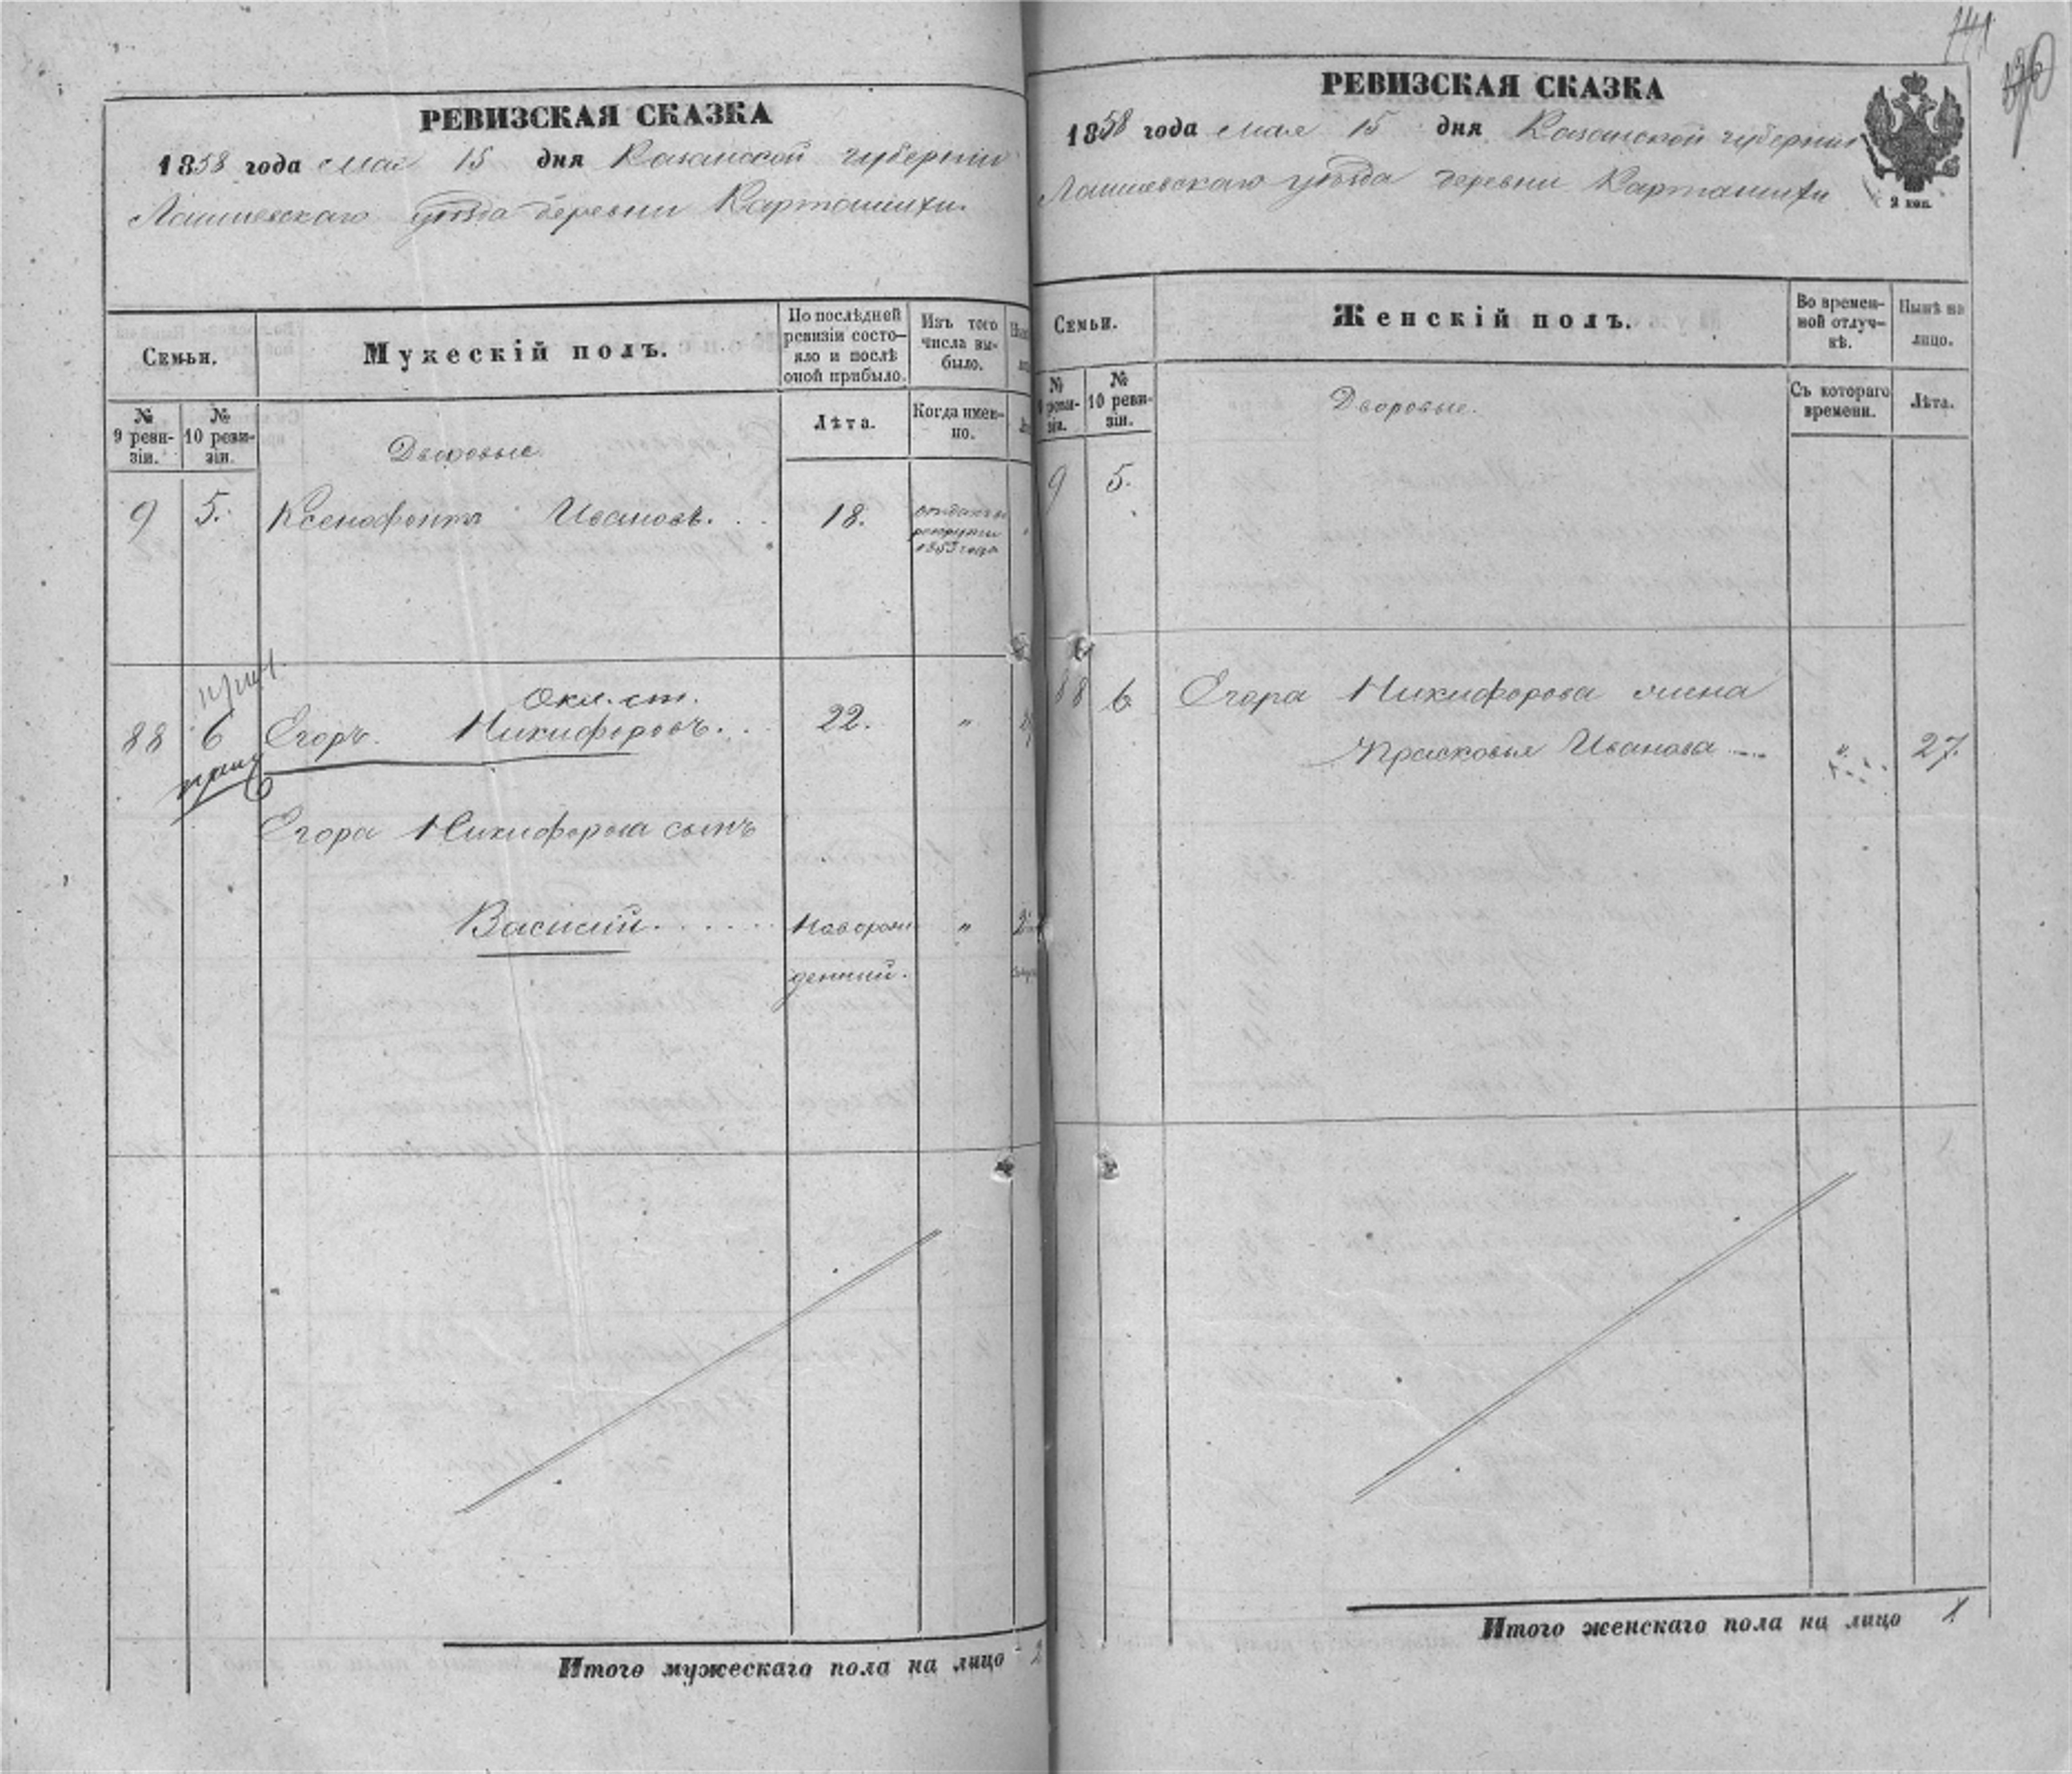 РЕВИЗСКАЯ СКАЗКА
1858 года мая 15 дня Казанской губернiи
Лаишевскаго уѣзда деревни Карташихи.
Семьи.
Мужескій полъ.
По послѣдней
ревизіи состо-
яло и послѣ
оной прибыло.
Изъ того
числа вы-
было.
№
9 реви-
зіи.
№
10 реви-
зіи.
Дворовые.
Лѣта.
Когда имен-
но.
9 5. Ксенофонтъ Ивановъ. 18.
отданъ въ
рекруты
1853 года
Окл. ст.
88 6 Егоръ Никифоровъ. 22. "
Егора Никифорова сынъ
Василій новорож "
денный.
Итого мужескаго пола на лицо 2
141
РЕВИЗСКАЯ СКАЗКА
1858 года мая 15 дня Казанской губерніи
Лаишевскаго уѣзда деревни Карташихи
2 коп.
Семьи.
Женскій полъ.
Во времен-
ной отлуч-
кѣ.
Нынѣ на
лицо.
№
9 реви-
зіи.
№
10 реви-
зіи.
Дворовые.
Съ котораго
времени.
Лѣта.
9 5.
88 6. Егора Никифорова жена
Прасковья Иванова " 27.
Итого женскаго пола на лицо 1